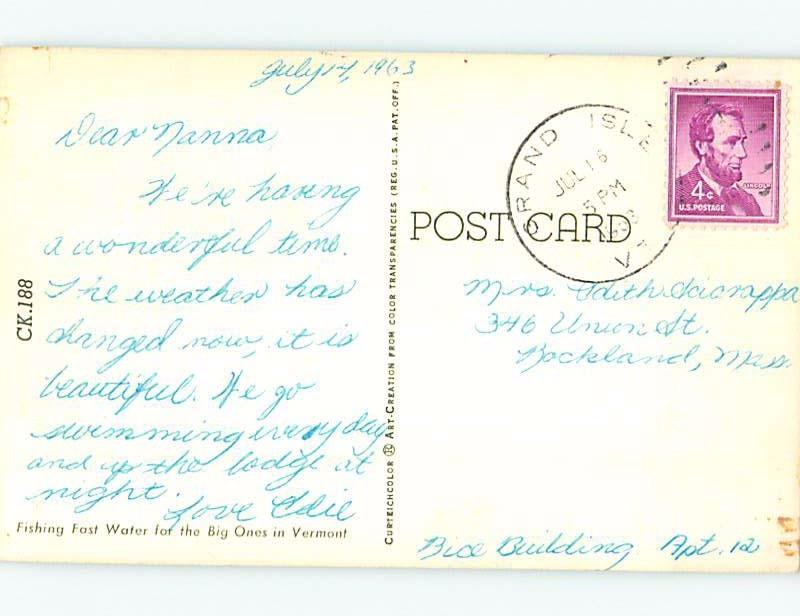 July 14, 1963
Dear Nanna,
We're having
a wonderful time.
The weather has
changed now, it is
beautiful. We go
swimming every day
and up the lodge at
night.
Love Edie
Fishing Fast Water for the Big Ones in Vermont
CK.188
CURTEICHCOLOR ® ART-CREATION FROM COLOR TRANSPARENCIES (REG. U.S.A. PAT. OFF.)
POST CARD
GRAND ISLE
JUL 16
5 PM
1963
VT
4¢
LINCOLN
U.S. POSTAGE
Mrs. Edith Sciarappa
346 Union St.
Rockland, Mass.
Bice Building Apt. 12